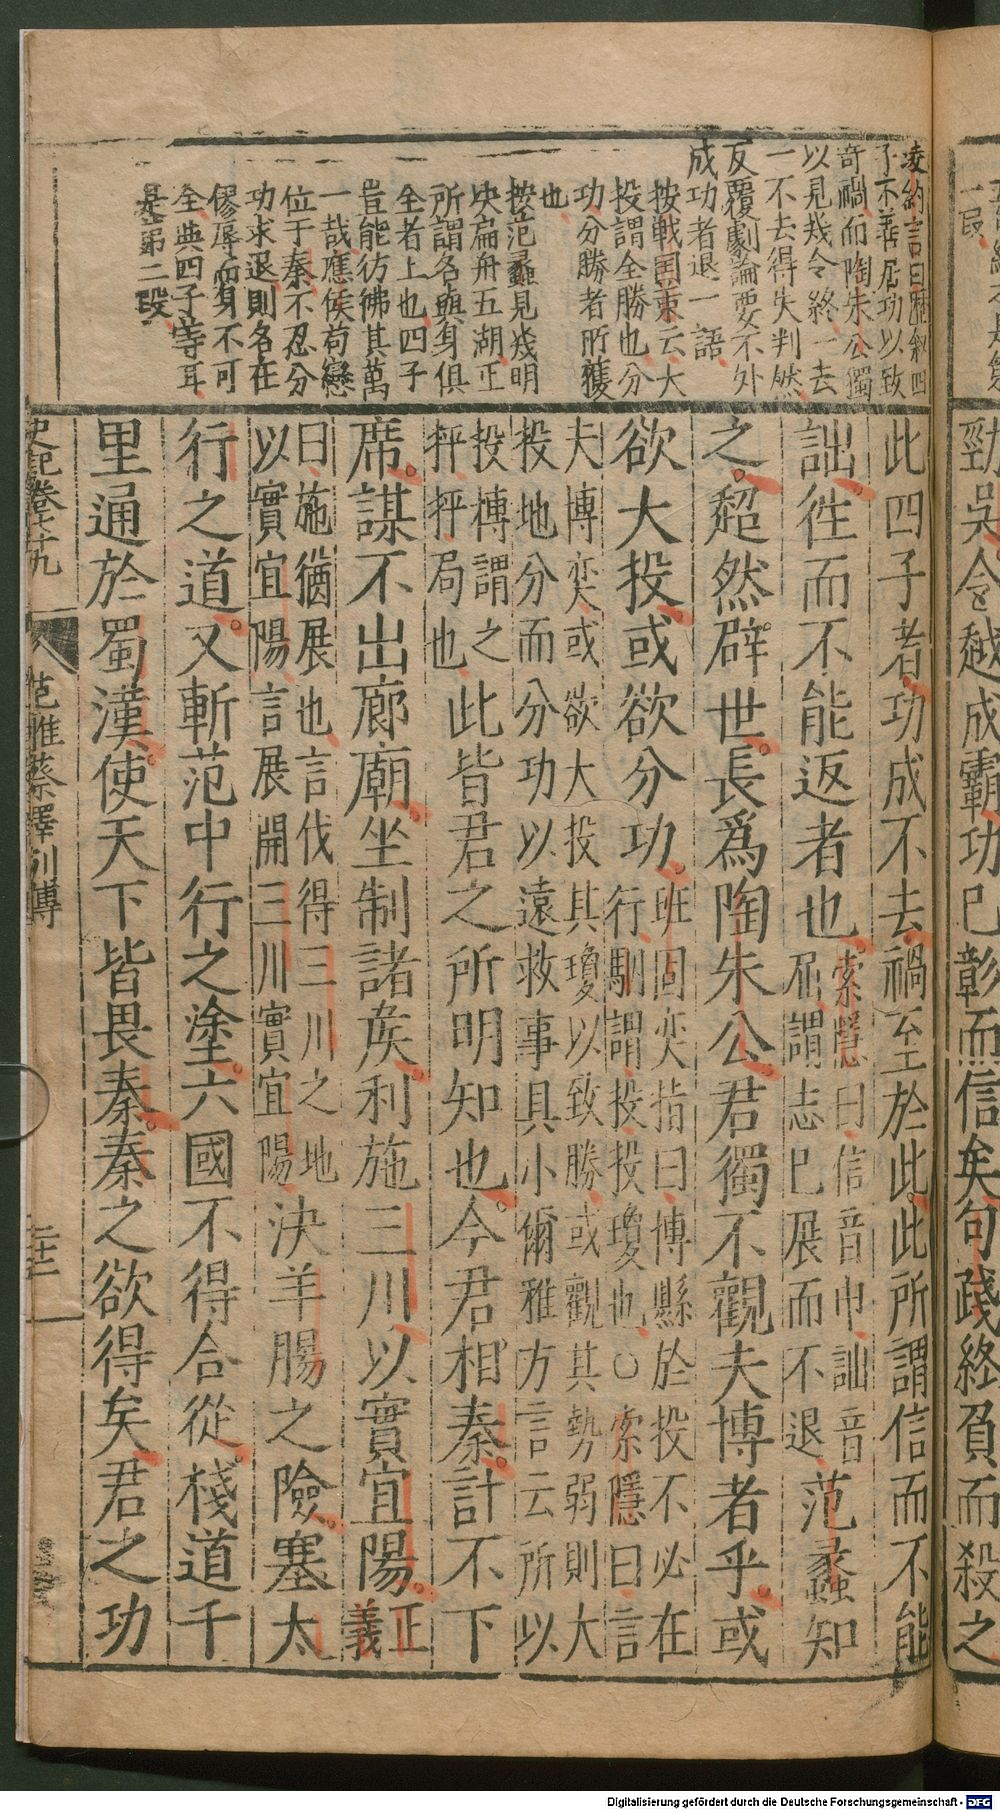 凌約言曰歷叙四
子不善居功以致
奇禍而陶朱公獨
以見幾令終一去
一不去得失判然
反覆劇論要不外
成功者退一語
按戰国策云大
投謂全勝也分
功分勝者所獲
也
按范蠡見幾明
決扁舟五湖正
所謂名與身俱
全者上也四子
豈能彷彿其萬
一哉應侯苟戀
位于秦不忍分
功求退則名在
僇辱而身不可
全與四子等耳
是第二段
此四子者功成不去禍至於此此所謂信而不能
詘徃而不能返者也索隱曰信音申詘音
屈謂志已展而不退范蠡知
之超然辟世長爲陶朱公君獨不觀夫博者乎或
欲大投或欲分功班固奕指曰博縣於投不必在
行馴謂投投瓊也○索隱曰言
夫博奕或欲大投其瓊以致勝或觀其勢弱則大
投地分而分功以遠救事具小爾雅方言云所以
投博謂之
枰枰局也此皆君之所明知也今君相秦計不下
席謀不出廊廟坐制諸矦利施三川以實宜陽正
義
曰施猶展也言伐得三川之地
以實宜陽言展開三川實宜陽決羊腸之險塞太
行之道又斬范中行之塗六國不得合從棧道千
里通於蜀漢使天下皆畏秦秦之欲得矣君之功
史記卷七十九
范雎蔡澤列傳
二十二
勁吳令越成霸功已彰而信矣句踐終負而殺之
一段
Digitalisierung gefördert durch die Deutsche Forschungsgemeinschaft - DFG